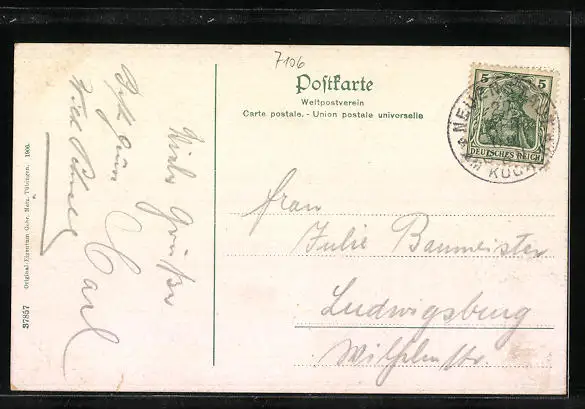 7106
Postkarte
Weltpostverein
Carte postale. - Union postale universelle
5 5
DEUTSCHES REICH
NEUEN
KOCHER
Frau
Julie Baumeister
Ludwigsburg
Wilhelmstr.
Viele Grüße
Carl
37857
Original-Eigentum Gebr. Metz, Tübingen. 1906.